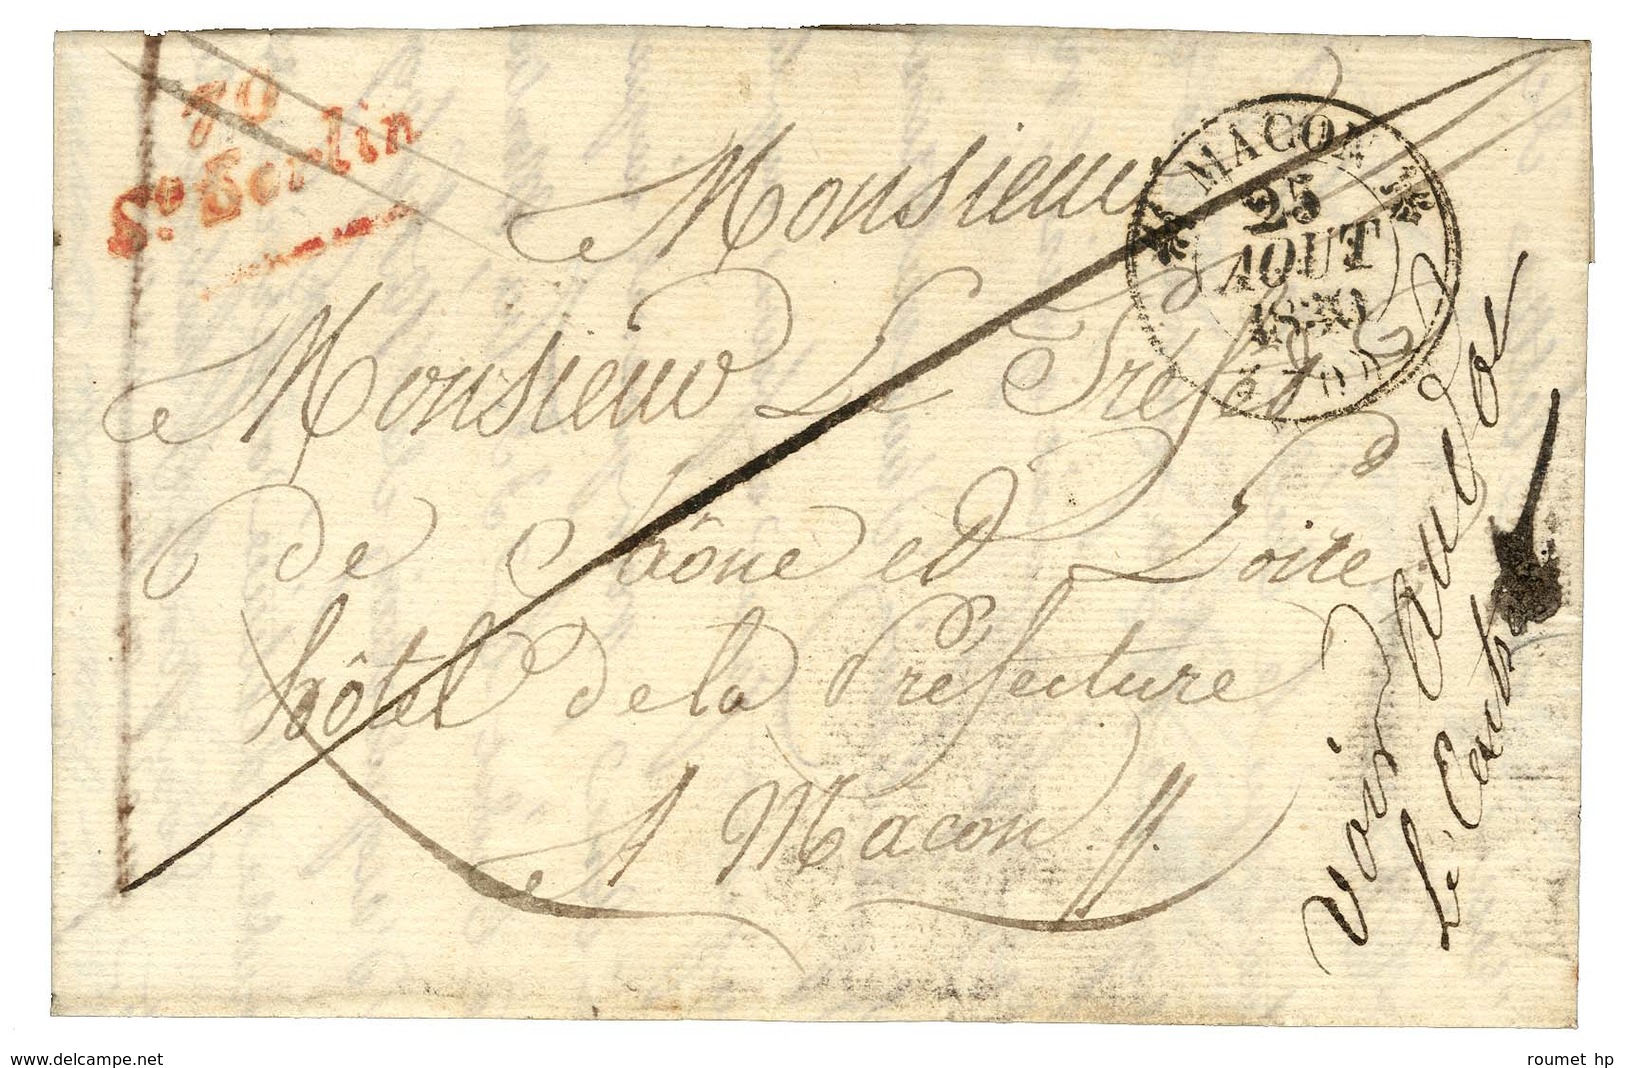 70
St. Sorlin
MACON
25
AOUT
1830
(70)
Monsieur
Monsieur Le Préfet
de Saône et Loire
hôtel de la Préfecture
A Macon //.
voir au dos
le Cachet
www.delcampe.net
roumet hp